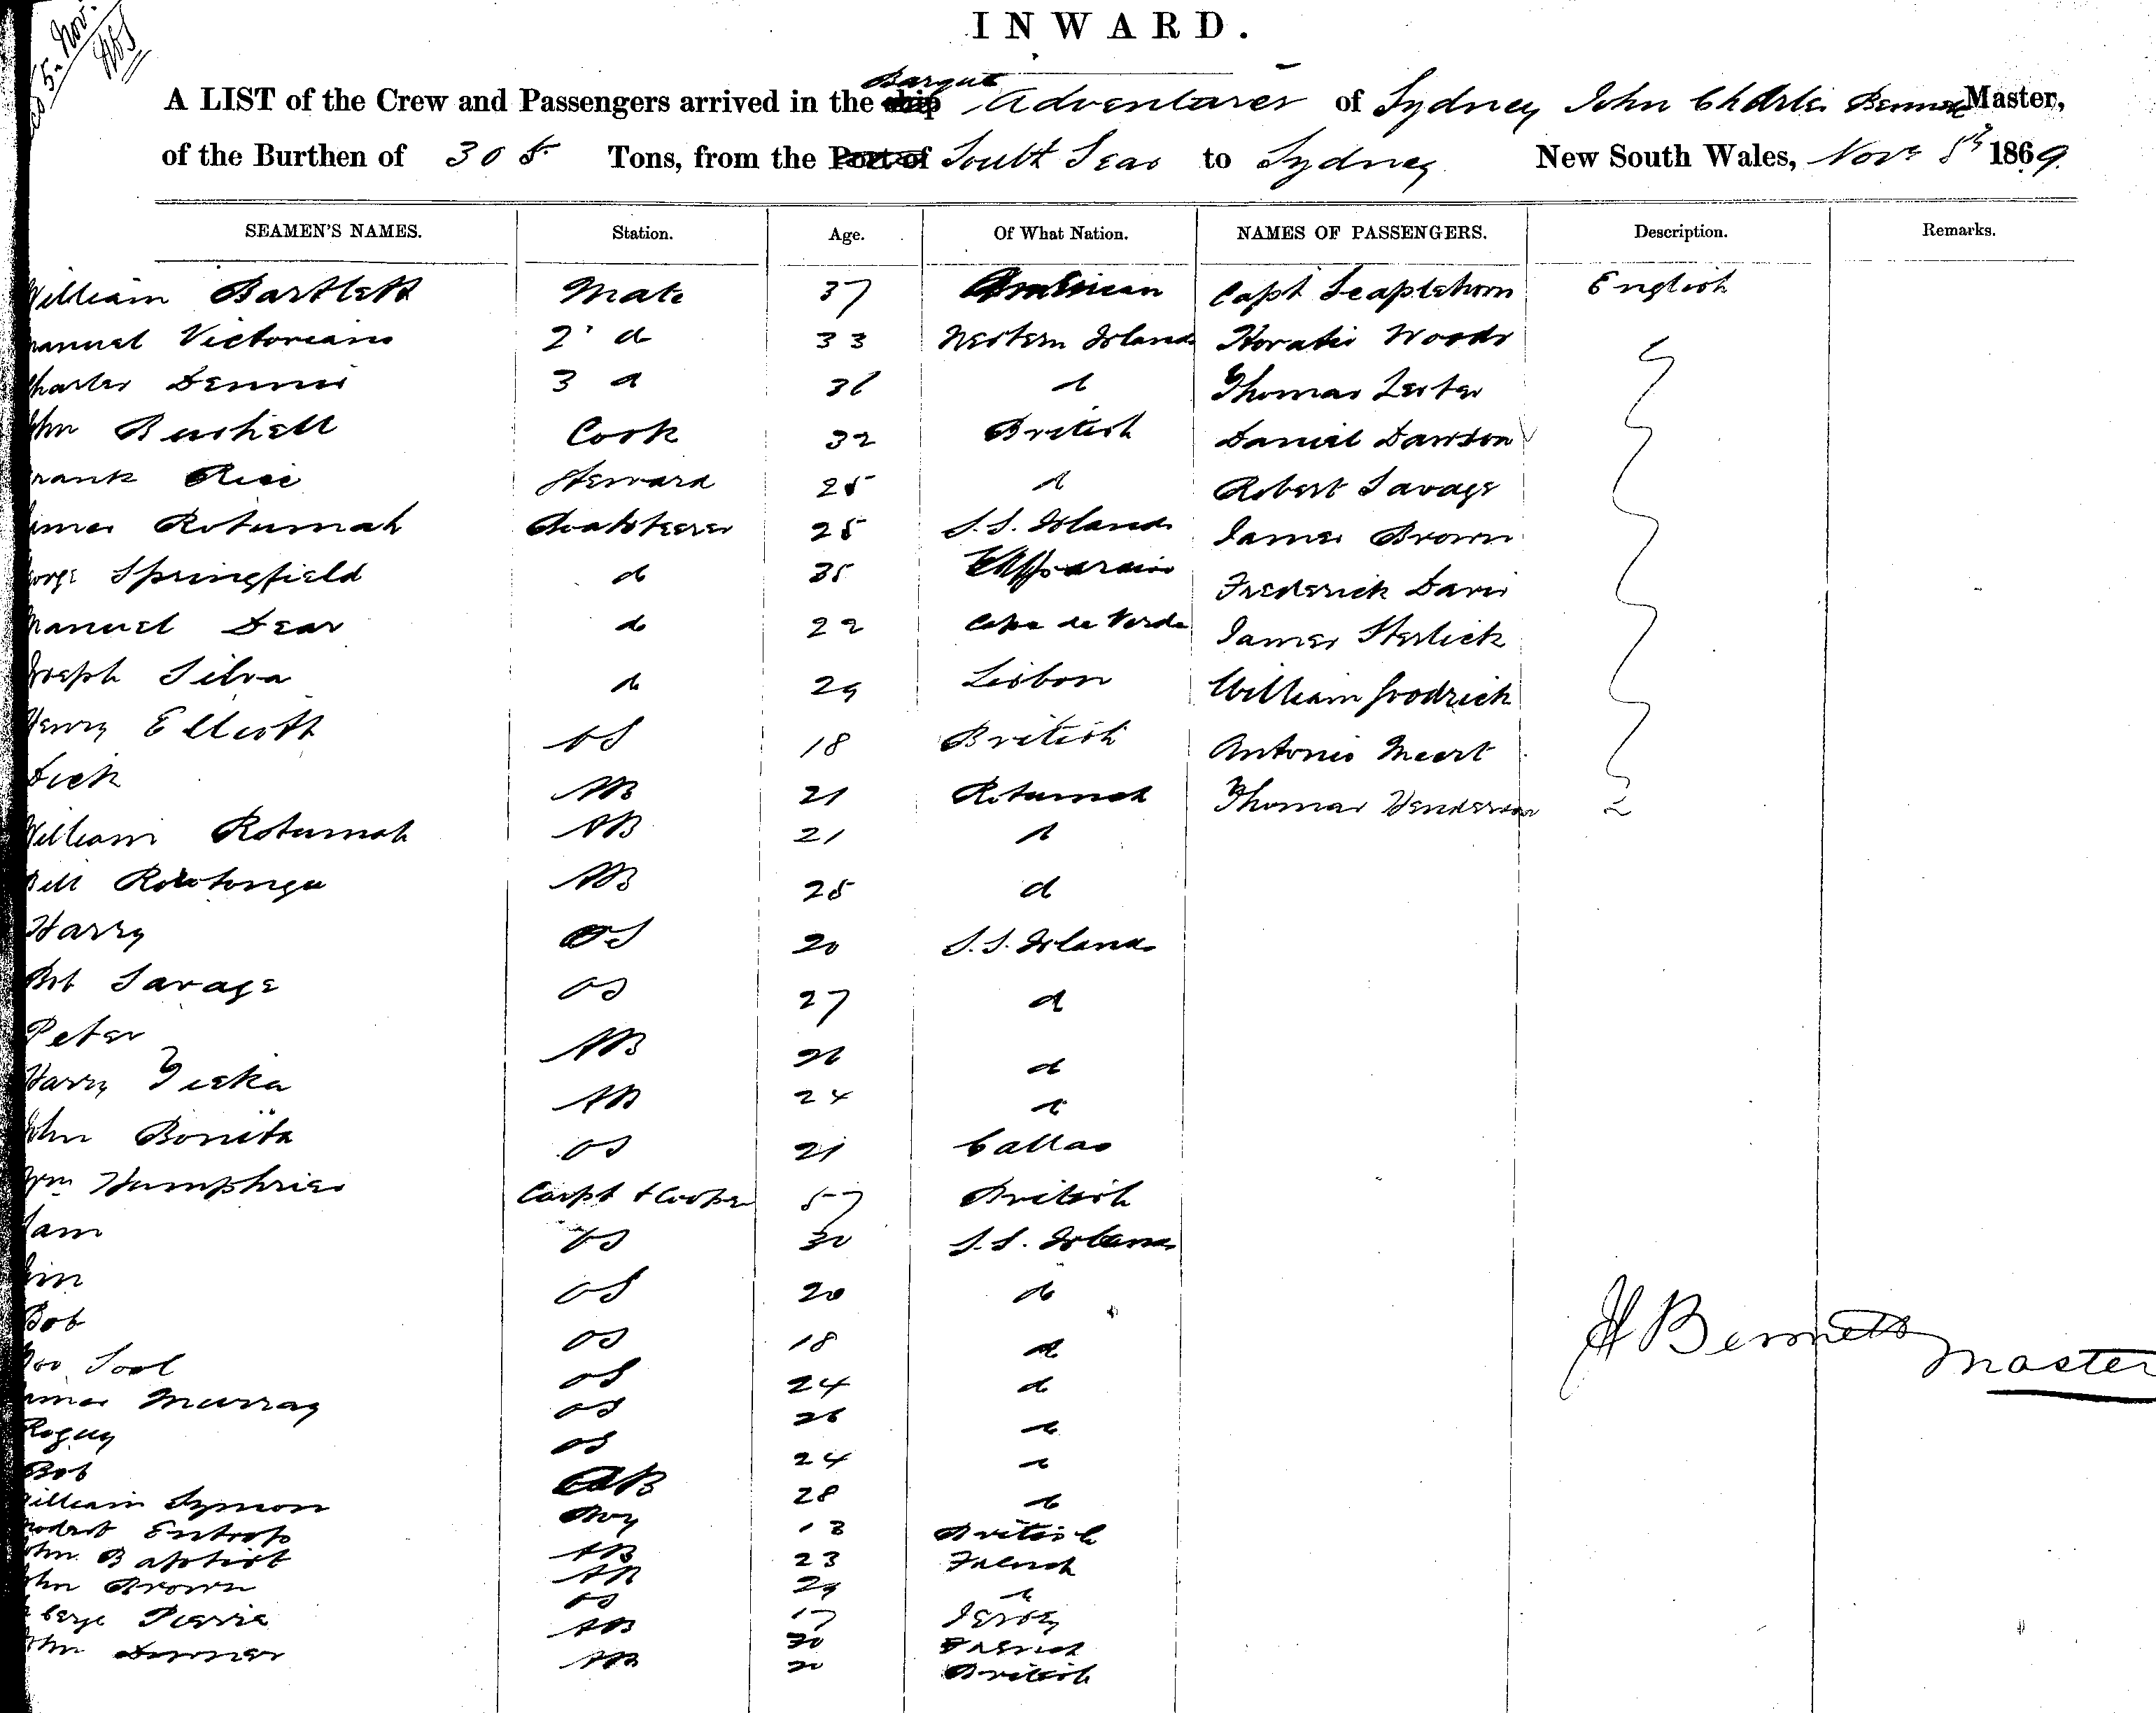 5. Nov.
INWARD.
Barque
A LIST of the Crew and Passengers arrived in the ship Adventurer of Sydney John Charles Bennett Master,
of the Burthen of 305 Tons, from the Port of South Seas to Sydney New South Wales, Nov 5th 1869.
SEAMEN'S NAMES. Station. Age. Of What Nation. NAMES OF PASSENGERS. Description. Remarks.
William Bartlett Mate 37 American Capt Seaplehorn English
Manuel Victoriano 2 d 33 Western Islands Horatio Woods
Charles Dennis 3 d 36 d Thomas Lester
John Bushell Cook 32 British Daniel Dawson
Frank Rice Steward 25 d Robert Savage
James Rotumah Boatsteerer 25 S.S. Islands James Brown
George Springfield d 35 Frederick Davis
Manuel Dear d 22 Cape de Verde James Sterlick
Joseph Silva d 29 Lisbon William Goodrick
Henry Ellcott OS 18 British Antonio Meert
Dick AB 21 Rotumah Thomas Henderson
William Rotumah AB 21 d
Bill Rorotonga AB 25 d
Harry OS 20 S.S. Islands
Bob Savage OS 27 d
Peter AB 26 d
Harry Tieka AB 24 d
John Bonita OS 21 Callao
Wm Humphries Carpt & Cooper 57 British
Sam OS 30 S.S. Islands
Jim OS 20 d
Bob OS 18 d
Sool OS 24 d
James Murray OS 26 d
OS 24 d
Bob AB 28 d
William Symon Boy 13 British
Modest Entrop AB 23 French
John Baptist AB 29 d
John Brown OS 17 Jersey
Pierre AB 30 French
John AB 30 British
JC Bennett
Master